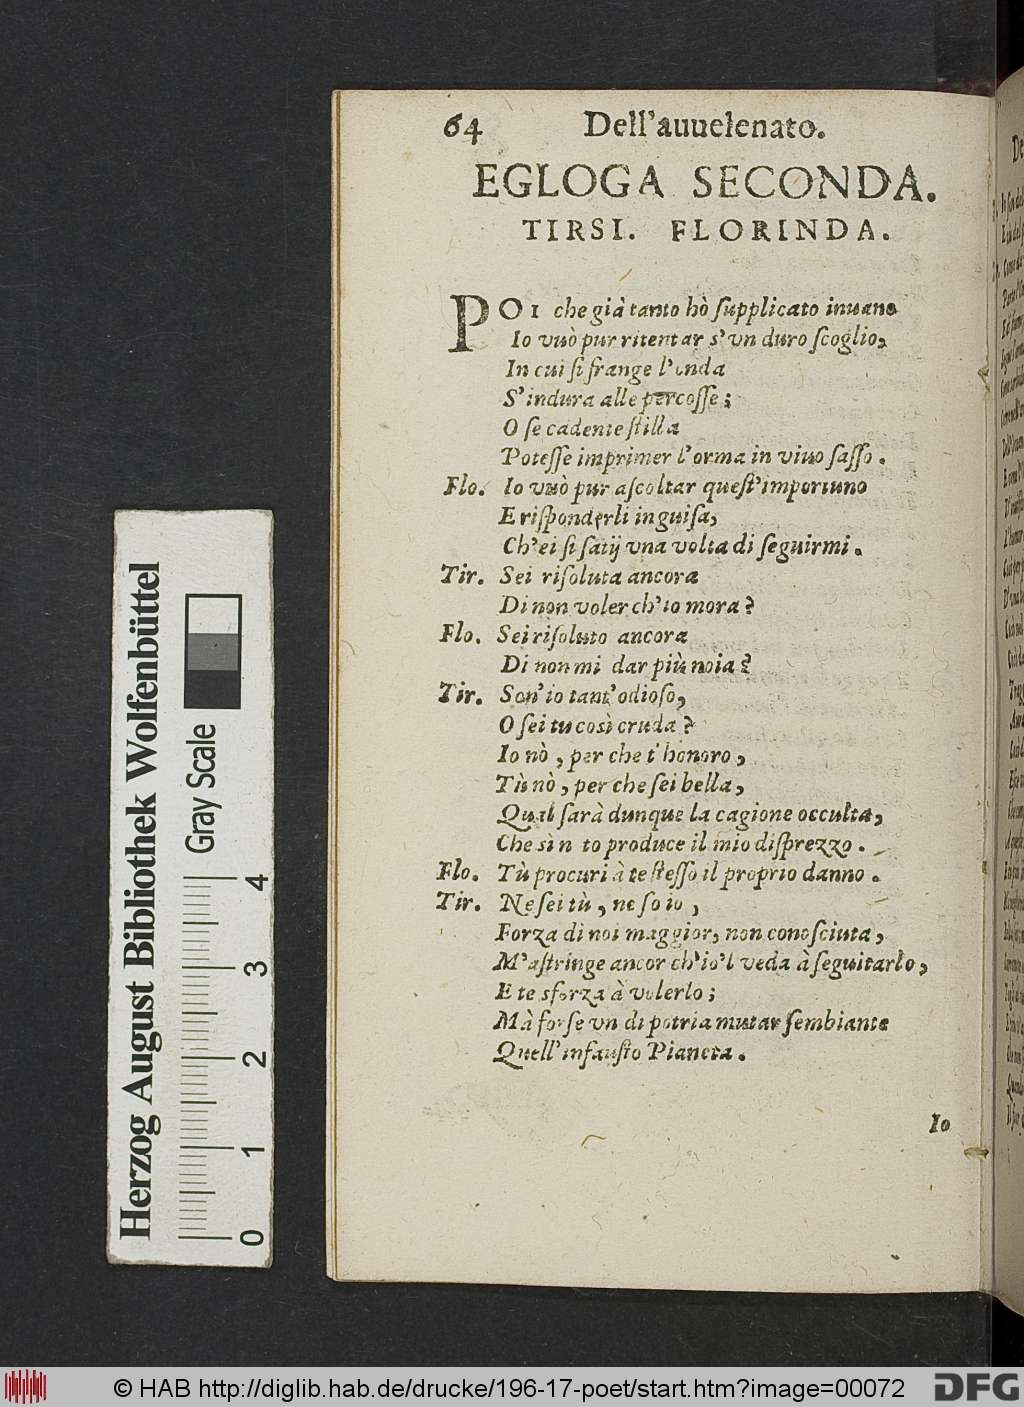 64 Dell'auuelenato.
EGLOGA SECONDA.
TIRSI. FLORINDA.
POI che già tanto hò ſupplicato inuano
Io vuò pur ritentar s'vn duro ſcoglio,
In cui ſi frange l'onda
S'indura alle percoſſe;
O ſe cadente ſtilla
Poteſſe imprimer l'orma in viuo ſaſſo.
Flo. Io vuò pur aſcoltar queſt'importuno
E riſponderli in guiſa,
Ch'ei ſi ſatij vna volta di ſeguirmi.
Tir. Sei riſoluta ancora
Di non voler ch'io mora?
Flo. Sei riſoluto ancora
Di non mi dar più noia?
Tir. Son'io tant'odioſo,
O ſei tu così cruda?
Io nò, per che t'honoro,
Tù nò, per che ſei bella,
Qual ſarà dunque la cagione occulta,
Che sì n to produce il mio diſprezzo.
Flo. Tù procuri à te ſteſſo il proprio danno.
Tir. Ne ſei tù, ne ſo io,
Forza di noi maggior, non conoſciuta,
M'aſtringe ancor ch'io'l veda à ſeguitarlo,
E te sforza à volerlo;
Mà forſe vn di potria mutar ſembiante
Quell'infauſto Pianeta.
Io
Herzog August Bibliothek Wolfenbüttel
Gray Scale
0 1 2 3 4
© HAB http://diglib.hab.de/drucke/196-17-poet/start.htm?image=00072
DFG